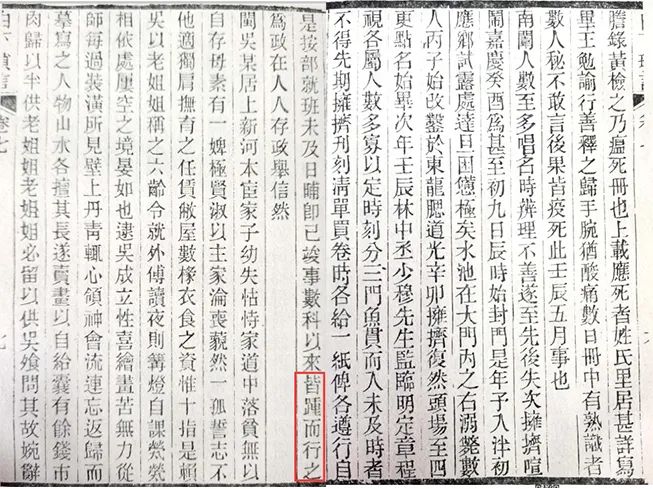 謄錄黃檢之乃瘟死冊也上載應死者姓氏里居甚詳寫
畢王勉諭行善釋之歸手腕猶酸痛數日冊中有熟識者
數人秘不敢言後果皆疫死此壬辰五月事也
南闈人數至多唱名時辦理不善遂至先後失次擁擠喧
鬧嘉慶癸酉為甚至初九日辰時始封門是年予入泮初
應鄉試露處達旦困憊極矣水池在大門內之右溺斃數
人丙子始改鑿於東龍腮道光辛卯擁擠復然頭場至四
更點名始畢次年壬辰林中丞少穆先生監臨明定章程
視各屬人數多寡以定時刻分三門魚貫而入未及時者
不得先期擁擠刊刻清單買卷時各給一紙俾各遵行自
是按部就班未及日晡即已竣事數科以來皆踵而行之
為政在人人存政舉信然
閩吳某居上新河本宦家子幼失怙恃家道中落貧無以
自存母素有一婢極賢淑以主家淪喪藐然一孤誓志不
他適獨肩撫育之任賃敝屋數椽衣食之資惟十指是賴
吳以老姐姐稱之六齡令就外傅讀夜則篝燈自課煢煢
相依處屢空之境晏如也逮吳成立性喜繪畫苦無力從
師每過裝潢所見壁上丹青輒心領神會流連忘返歸而
摹寫之人物山水各擅其長遂賣畫以自給囊有餘錢市
肉歸以半供老姐姐老姐姐必留以供吳飧問其故婉辭
卷七